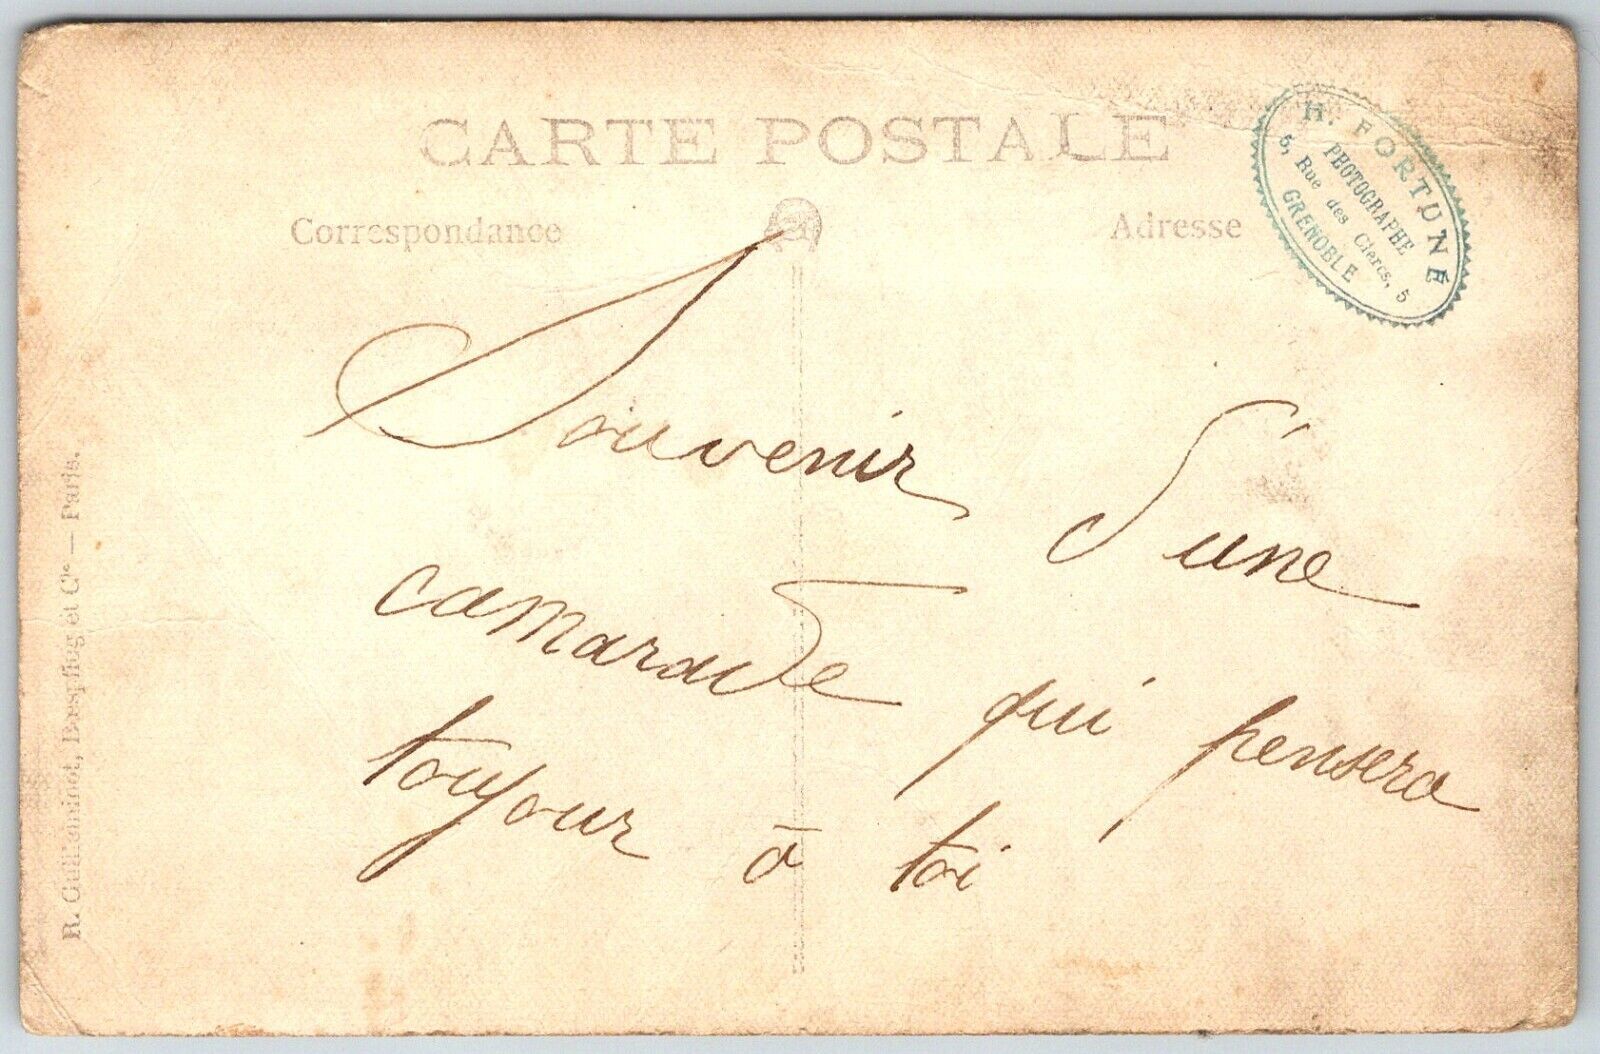 CARTE POSTALE
Correspondance
Adresse
H. FORTUNÉ
PHOTOGRAPHE
5, Rue des Clercs, 5
GRENOBLE
Souvenir d'une
camarade qui pensera
toujour à toi
R. Guilleminot, Bœspflug et Cie — Paris.